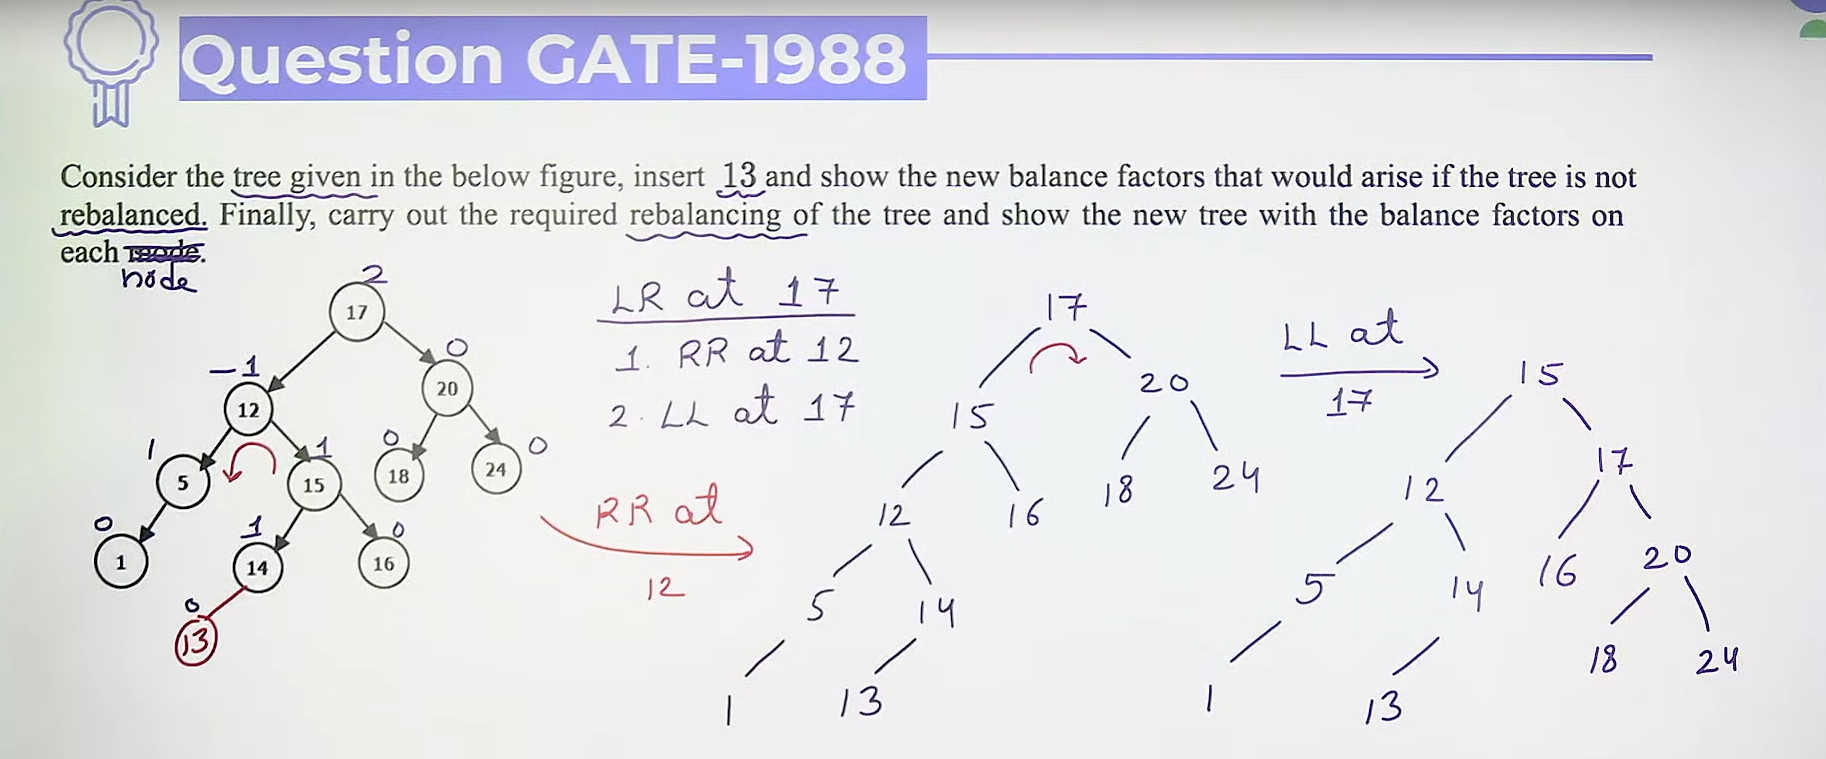 Question GATE-1988
Consider the tree given in the below figure, insert 13 and show the new balance factors that would arise if the tree is not
rebalanced. Finally, carry out the required rebalancing of the tree and show the new tree with the balance factors on
each mode.
node
2
17
0
-1
20
12
1
1
0
18
24
0
5
15
0
1
0
1
14
16
0
13
LR at 17
1. RR at 12
2. LL at 17
RR at
12
17
15
20
12
16
18
24
5
14
1
13
LL at
17
15
12
17
5
14
16
20
1
13
18
24